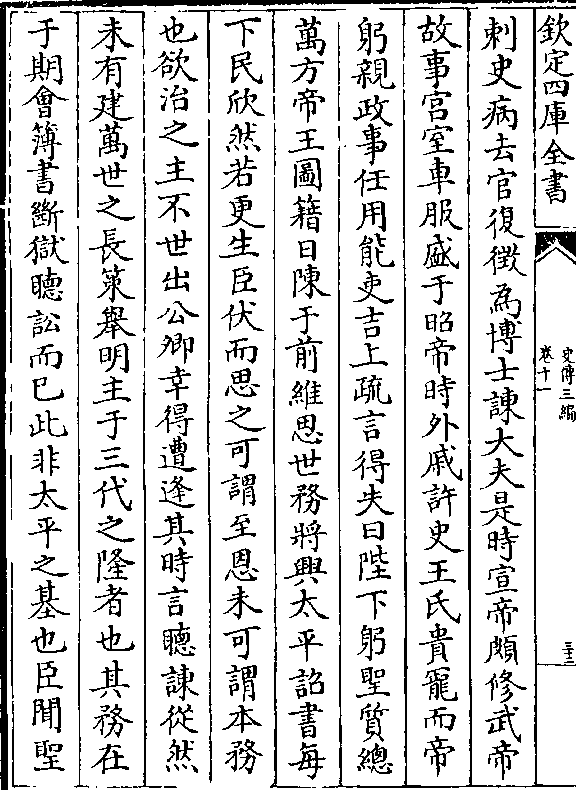 欽定四庫全書
史傳三編
卷十一
三十二
刺史病去官復徵為博士諫大夫是時宣帝頗修武帝
故事宮室車服盛于昭帝時外戚許史王氏貴寵而帝
躬親政事任用能吏吉上疏言得失曰陛下躬聖質總
萬方帝王圖籍日陳于前維思世務將興太平詔書每
下民欣然若更生臣伏而思之可謂至恩未可謂本務
也欲治之主不世出公卿幸得遭逢其時言聽諫從然
未有建萬世之長策舉明主于三代之隆者也其務在
于期會簿書斷獄聽訟而已此非太平之基也臣聞聖